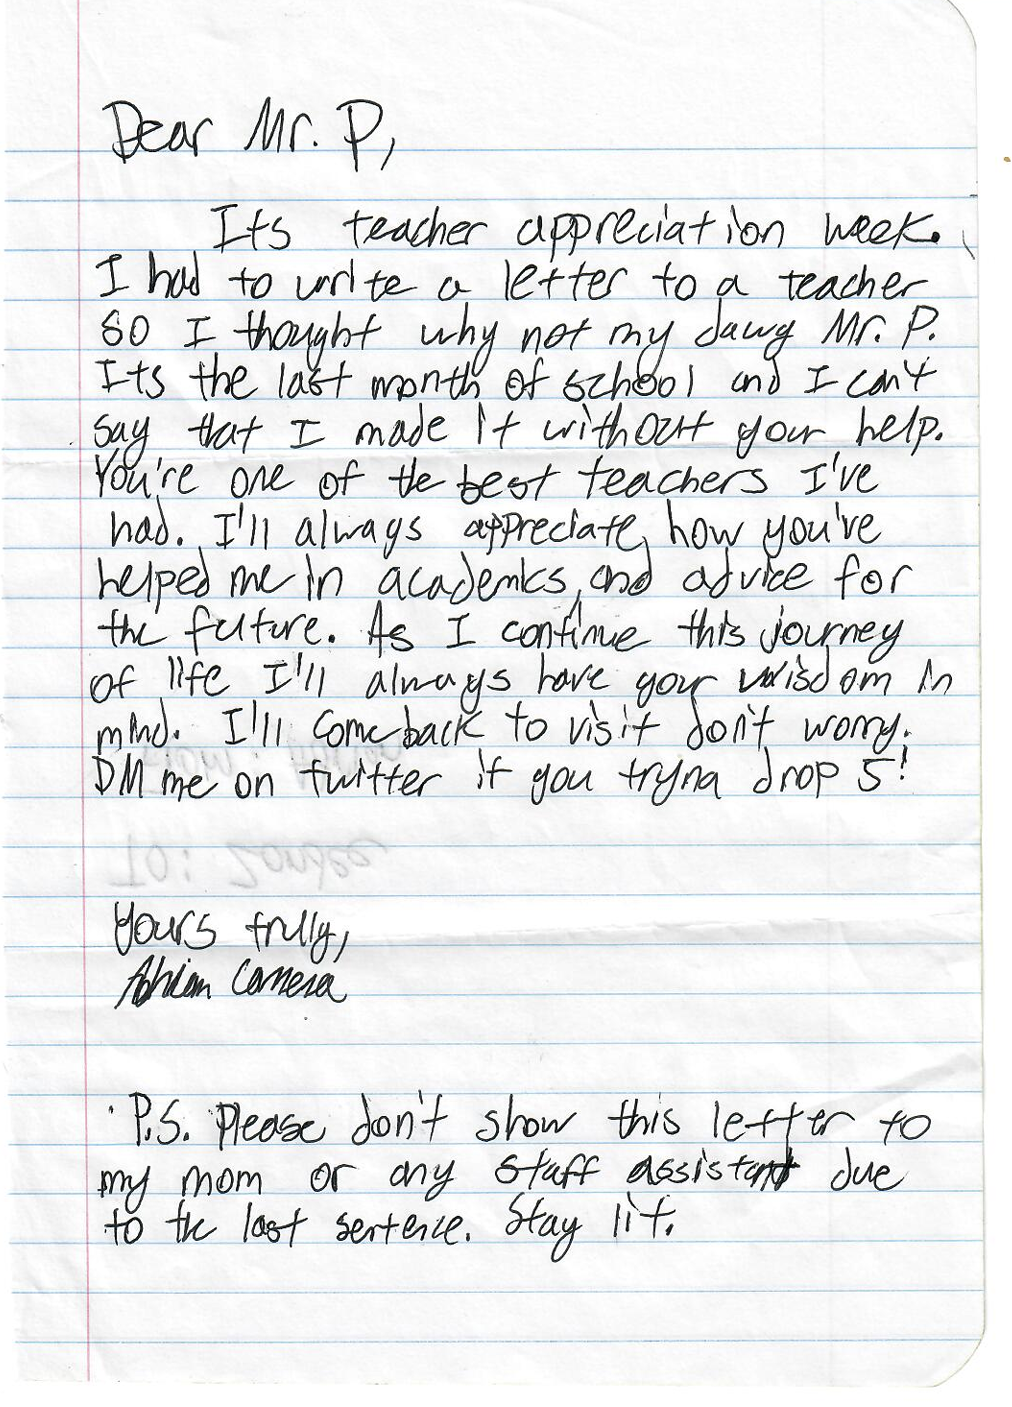 Dear Mr. P,
Its teacher appreciation week.
I had to write a letter to a teacher
so I thought why not my dawg Mr. P.
Its the last month of school and I can't
say that I made it without your help.
You're one of the best teachers I've
had. I'll always appreciate how you've
helped me in academics, and advice for
the future. As I continue this journey
of life I'll always have your wisdom in
mind. I'll come back to visit don't worry.
DM me on twitter if you tryna drop 5!
To:
Yours trully,
Adrian
P.S. Please don't show this letter to
my mom or any staff assistant due
to the last sentence. Stay lit.